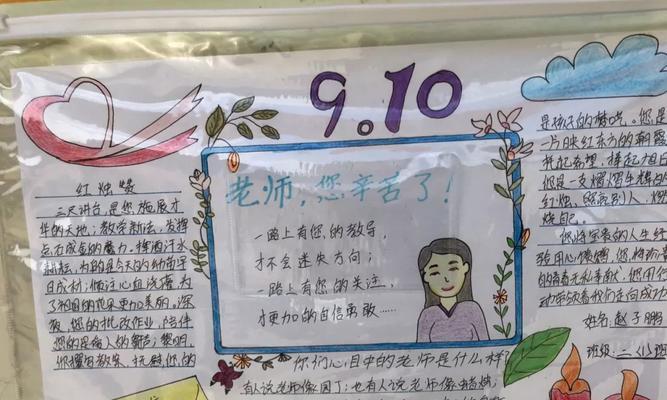 9.10
红烛赞
三尺讲台，是您施展才
华的天地；教学新法，发挥
点石成金的魔力。挥洒汗水
耕耘，为的是今天的幼苗早
日成材；倾注心血浇灌，为了
祖国的花朵更加美丽。深
夜，您的批改作业，陪伴
您的是病人的鼾声；黎明，
您撰写教案，抚慰您的
老师，您辛苦了！
一路上有您的教导，
才不会迷失方向；
一路上有您的关注，
才更加的自信勇敢……
你们心目中的老师是什么样
有人说老师像园丁；也有人说老师像蜡烛；
是孩子的梦呓。您是
一片映红东方的朝霞
托起希望，捧起太阳
您是一支熠熠生辉的
红烛，照亮别人，燃
烧自己。
您将宝贵的人生经
动牵领着我们走向成功
姓名：赵子鹏
班级：二（1）班